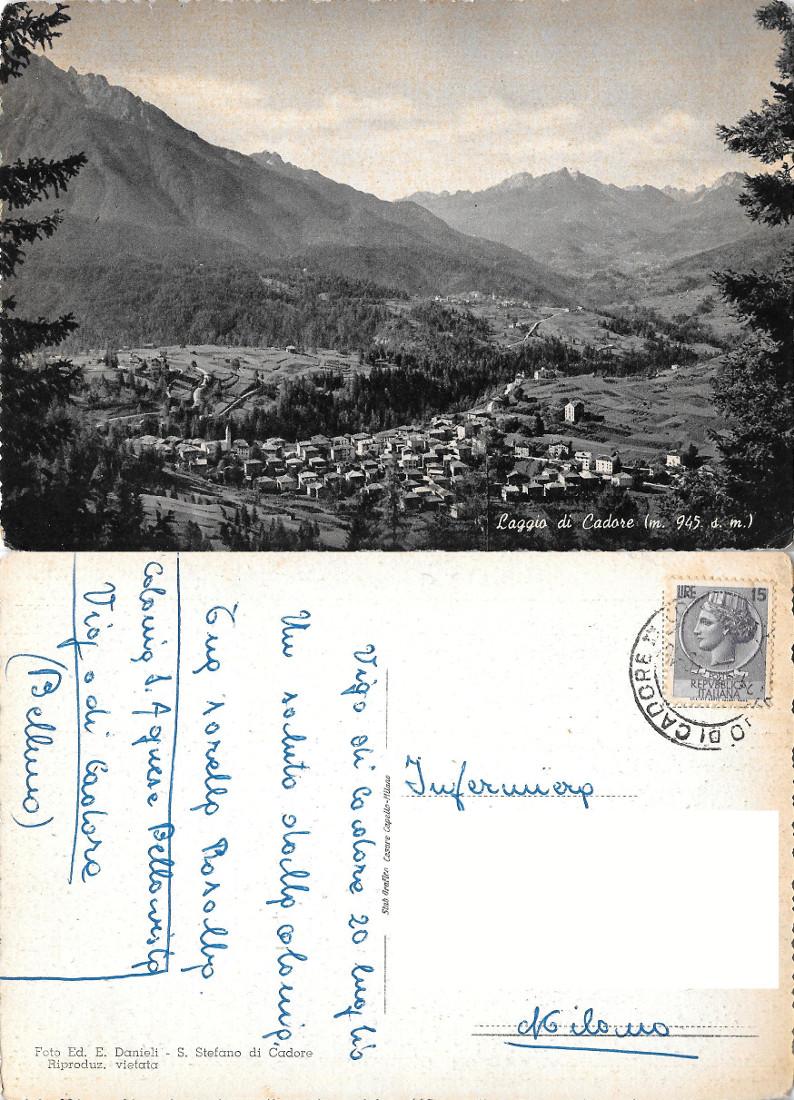 Laggio di Cadore (m. 945. s. m.)
LIRE 15
REPVBBLICA
ITALIANA
O DI CADORE
Vigo di Cadore 20 luglio
Un saluto dalla colonia,
tua sorella Rosalba.
Colonia S. Agnese Bellavista
Vigo di Cadore
(Belluno)
Stab. Grafico Cesare Capello-Milano
Infermiera
Milano
Foto Ed. E. Danieli - S. Stefano di Cadore
Riproduz. vietata